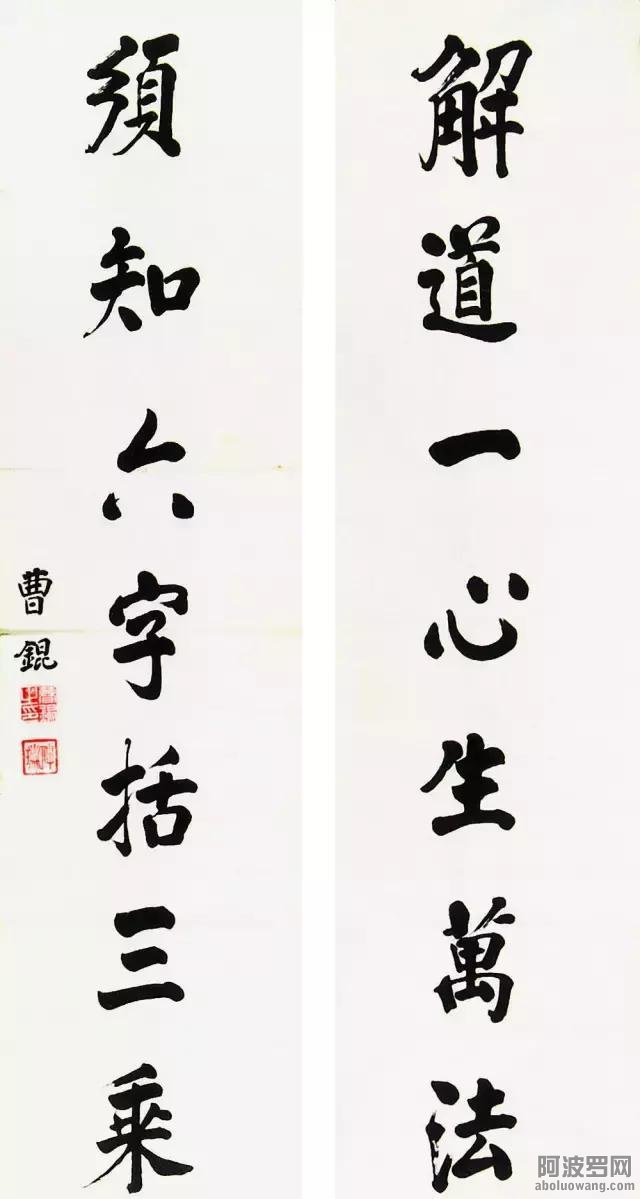 解道一心生萬法
須知六字括三乘
曹錕
阿波罗网
aboluowang.com